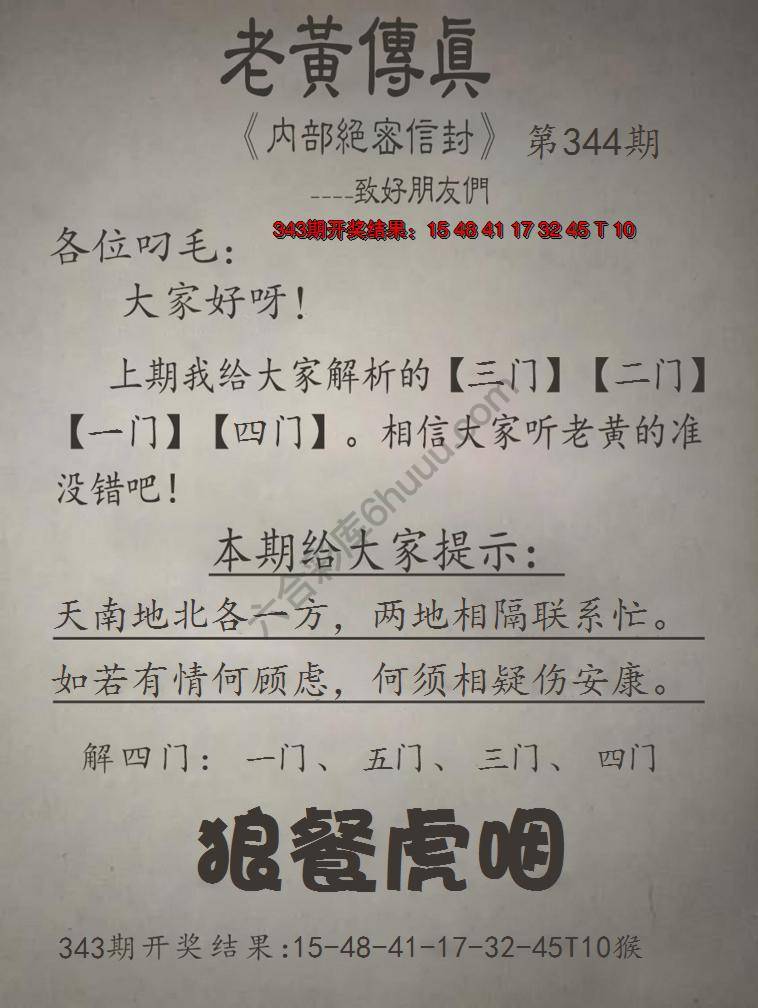 老黃傳眞
《内部絕密信封》 第344期
----致好朋友們
343期开奖结果：15 48 41 17 32 45 T 10
各位叼毛：
大家好呀！
上期我给大家解析的【三门】【二门】
【一门】【四门】。相信大家听老黄的准
没错吧！
本期给大家提示：
天南地北各一方，两地相隔联系忙。
如若有情何顾虑，何须相疑伤安康。
解四门： 一门、 五门、 三门、 四门
狼餐虎咽
343期开奖结果:15-48-41-17-32-45T10猴
六合彩库6huuu.com